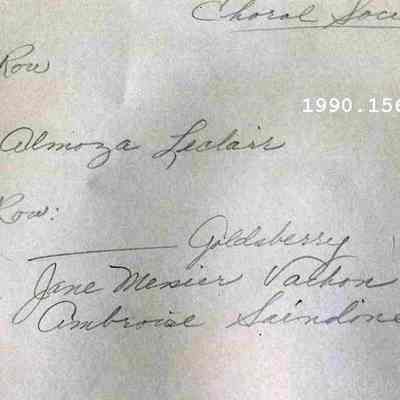 Choral Soci
Row
1990.156
Almoza Leclair
Row:
Goldsberry
Jane Messier Vachon
Ambroise Saindon